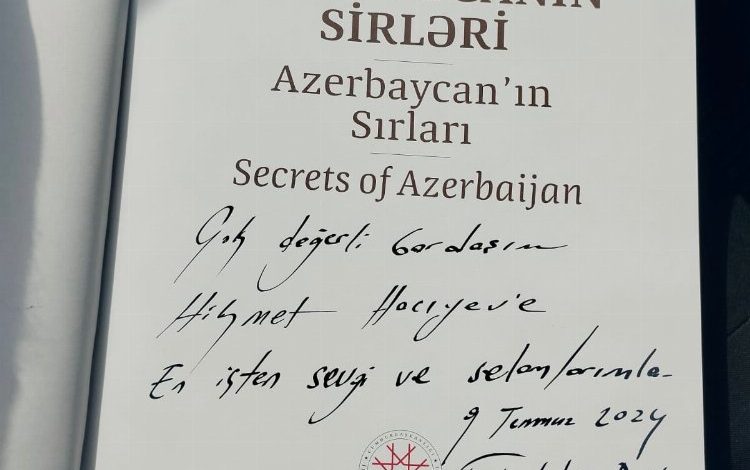 SİRLƏRİ
Azerbaycan'ın
Sırları
Secrets of Azerbaijan
Çok değerli Gardaşım
Hikmet Hacıyev'e
En içten sevgi ve selamlarımla
9 Temmuz 2024